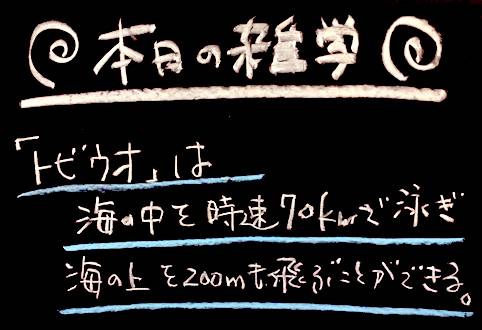 本日の雑学
「トビウオ」は
海の中を時速70kmで泳ぎ
海の上を200mも飛ぶことができる。